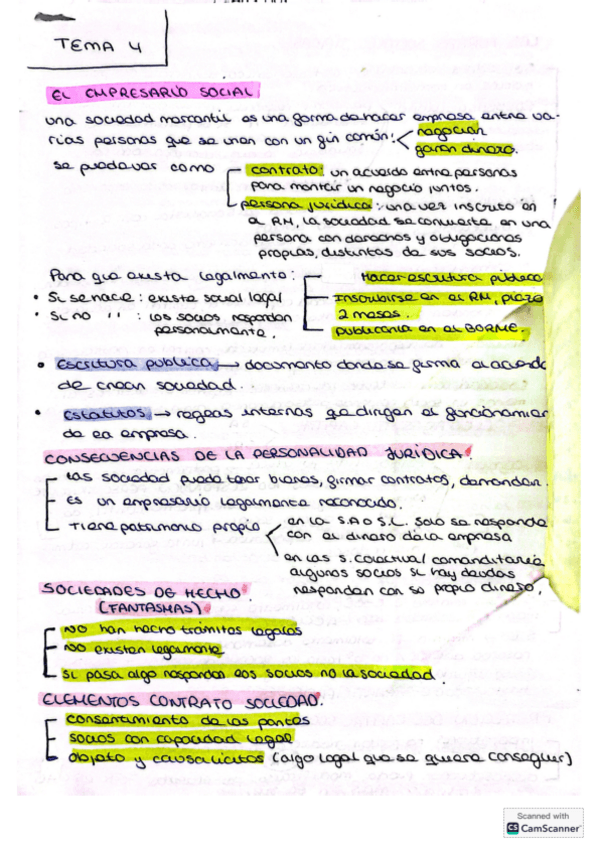 TEMA 4
EL EMPRESARIO SOCIAL
una sociedad mercantil es una forma de hacer empresa entre va-
rias personas que se unen con un fin común: negociar
ganar dinero.
se puede ver como
contrato: un acuerdo entre personas
para montar un negocio juntos.
persona jurídica: una vez inscrita en
el RM, la sociedad se convierte en una
persona con derechos y obligaciones
propias, distintas de sus socios.
Para que exista legalmente:
Hacer escritura pública
Inscribirse en el RM, plazo
2 meses.
Publicarla en el BORME.
• Si se hace: existe social legal
• Si no " : los socios respondan
personalmente.
• Escritura pública → documento donde se firma el acuerdo
de crear sociedad.
• Estatutos → reglas internas que dirigen el funcionamien
de la empresa.
CONSECUENCIAS DE LA PERSONALIDAD JURÍDICA.
Las sociedad puede tener bienes, firmar contratos, demandar.
Es un empresario legalmente reconocido.
Tiene patrimonio propio
en la S.A o S.L. solo se responde
con el dinero de la empresa
en las S. Colectiva/comanditaria
algunos socios si hay deudas
respondan con su propio dinero.
SOCIEDADES DE HECHO.
(FANTASMAS)
No han hecho trámites legales
No existen legalmente
Si pasa algo responden los socios no la sociedad.
ELEMENTOS CONTRATO SOCIEDAD.
consentimiento de las partes
socios con capacidad legal
objeto y causa lícitos (algo legal que se quiere conseguir)
Scanned with
CS CamScanner